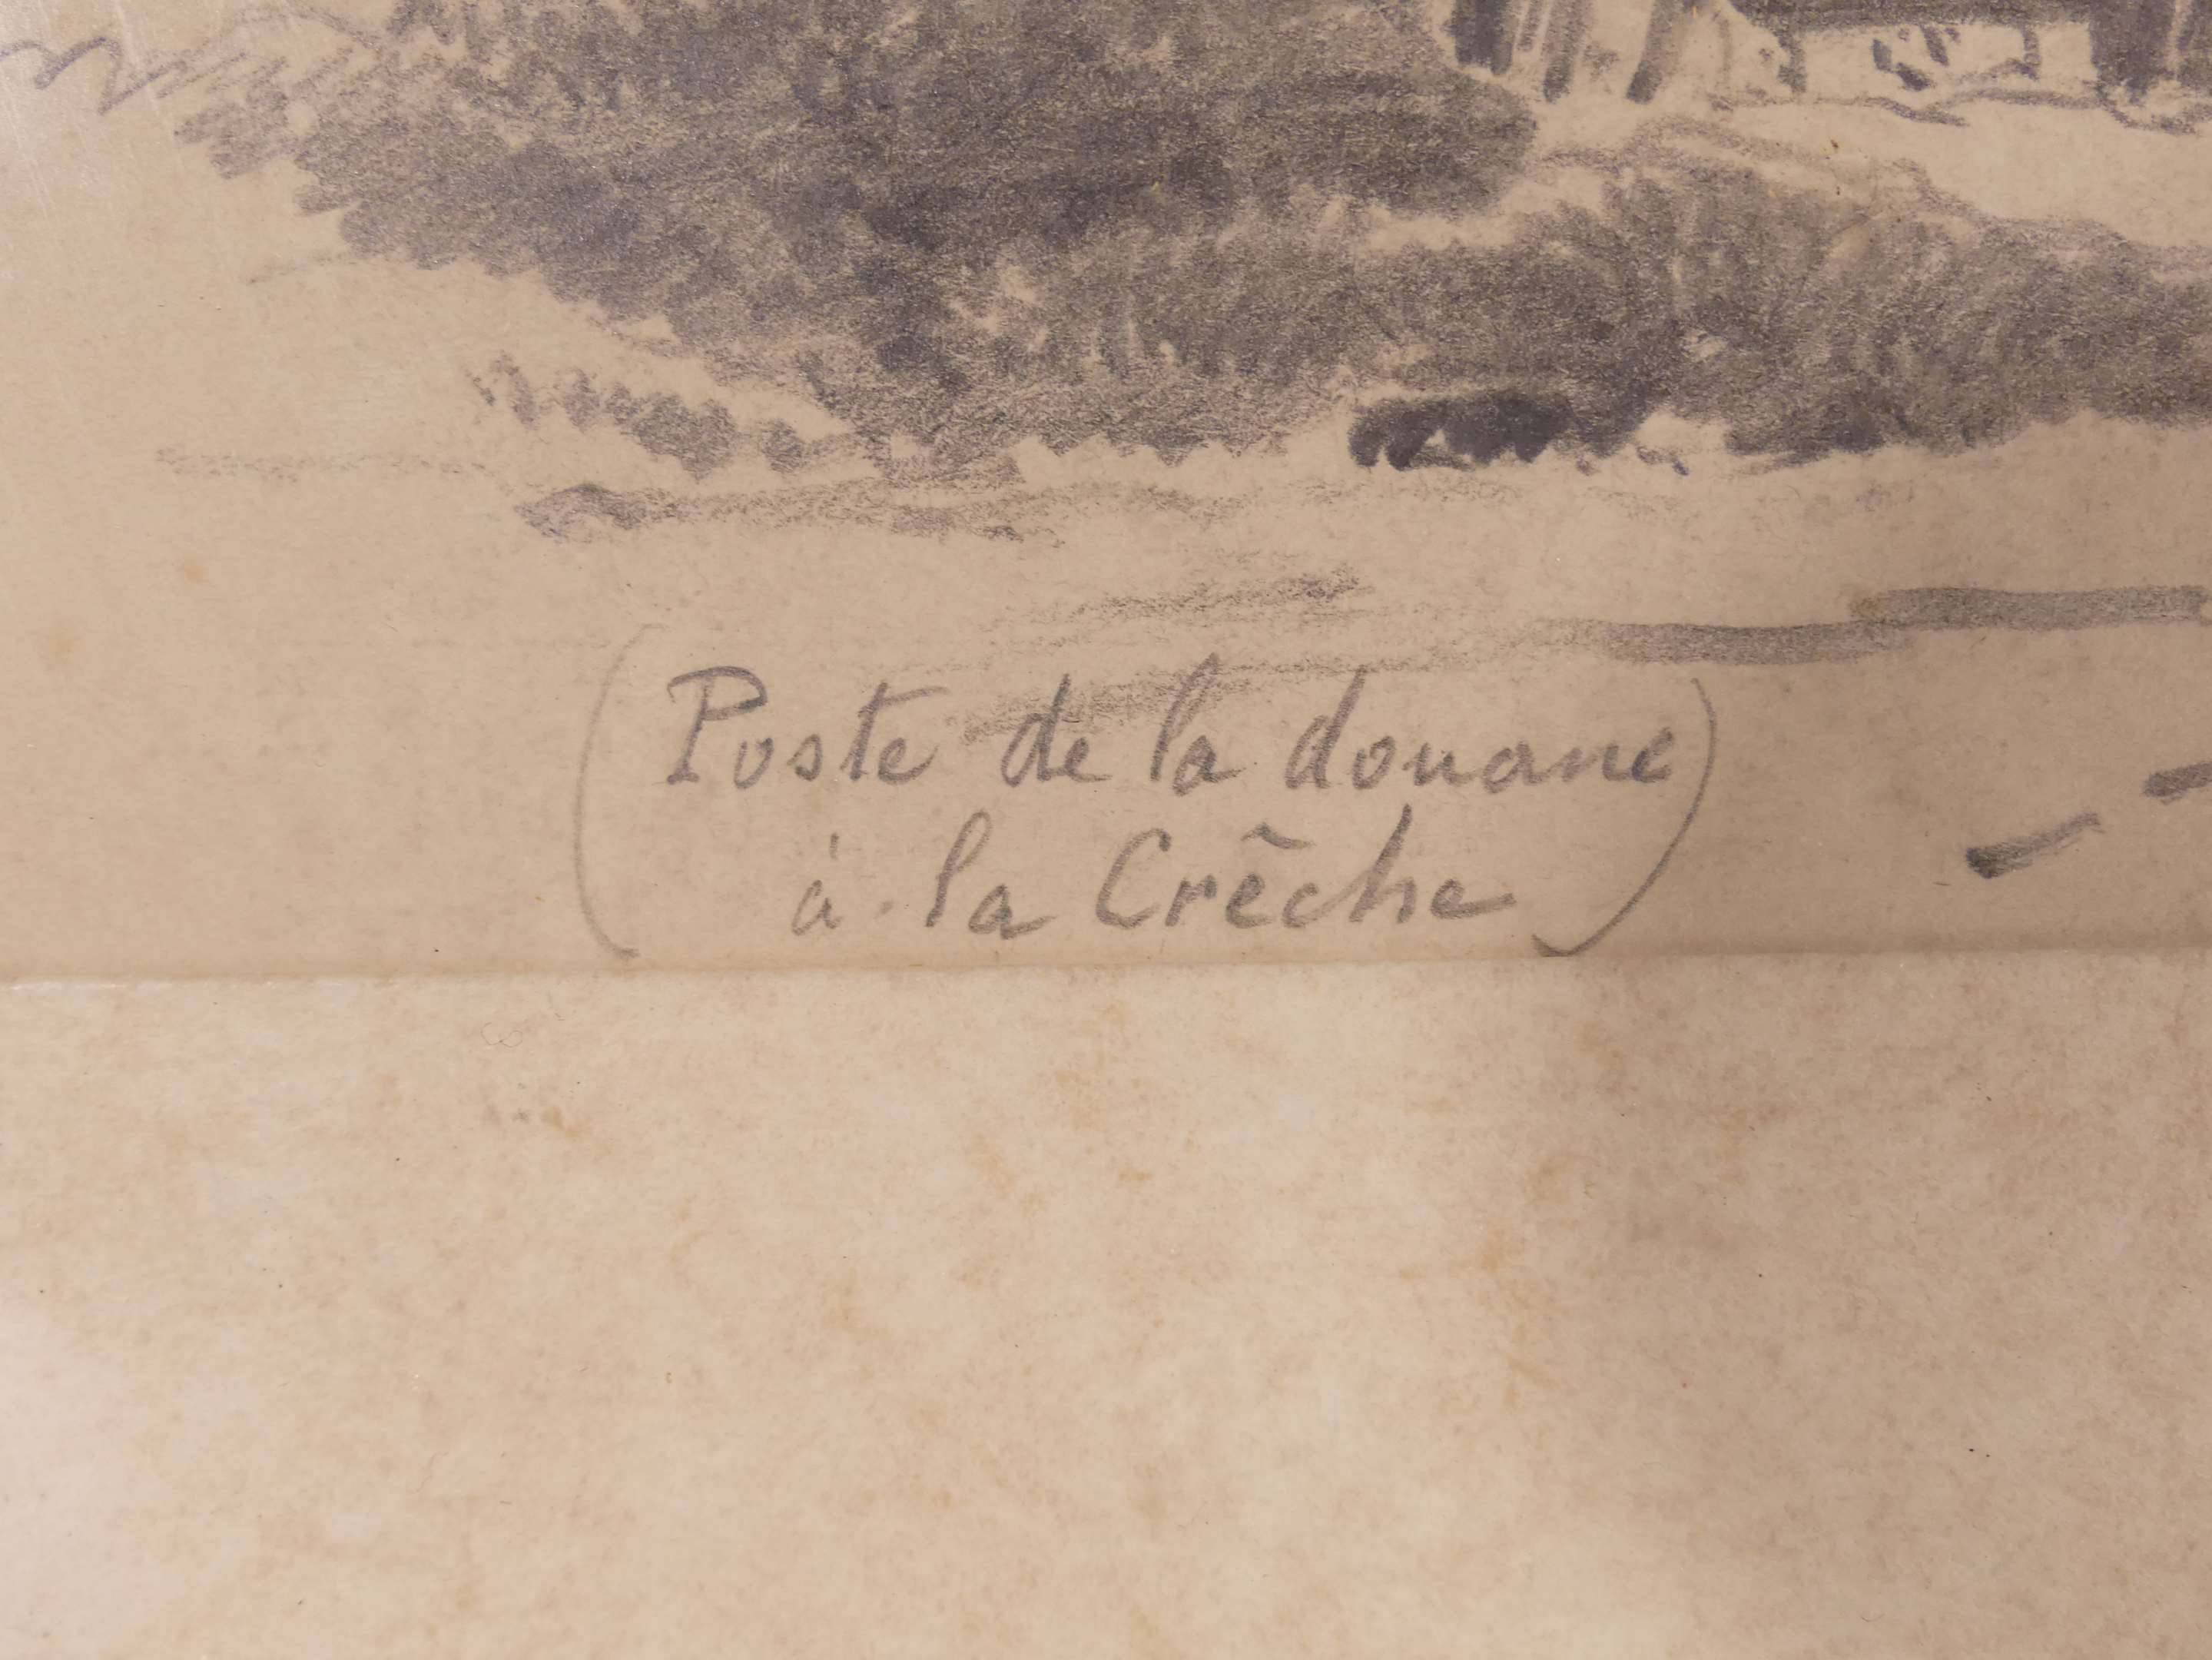 (Poste de la douane
à la Crêche)